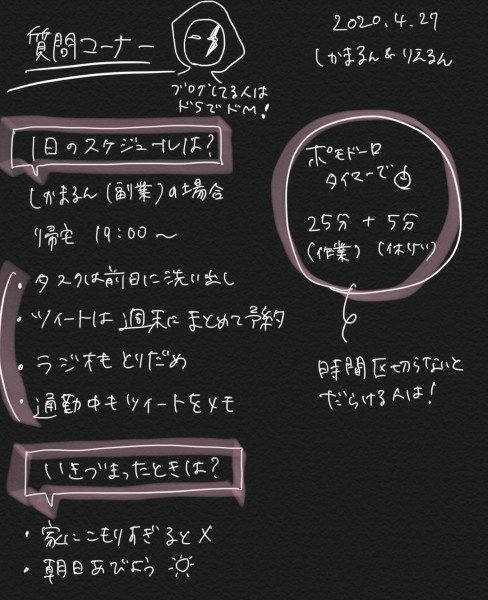 質問コーナー
ブログしてる人は
ドSでドM!
2020.4.27
しかまるん&りえるん
1日のスケジュールは?
しかまるん(副業)の場合
帰宅 19:00〜
・タスクは前日に洗い出し
・ツイートは週末にまとめて予約
・ラジオもとりだめ
・通勤中もツイートをメモ
ポモドーロ
タイマーで
25分 + 5分
(作業) (休けい)
時間区切らないと
だらける人は!
いきづまったときは?
・家にこもりすぎると×
・朝日あびよう